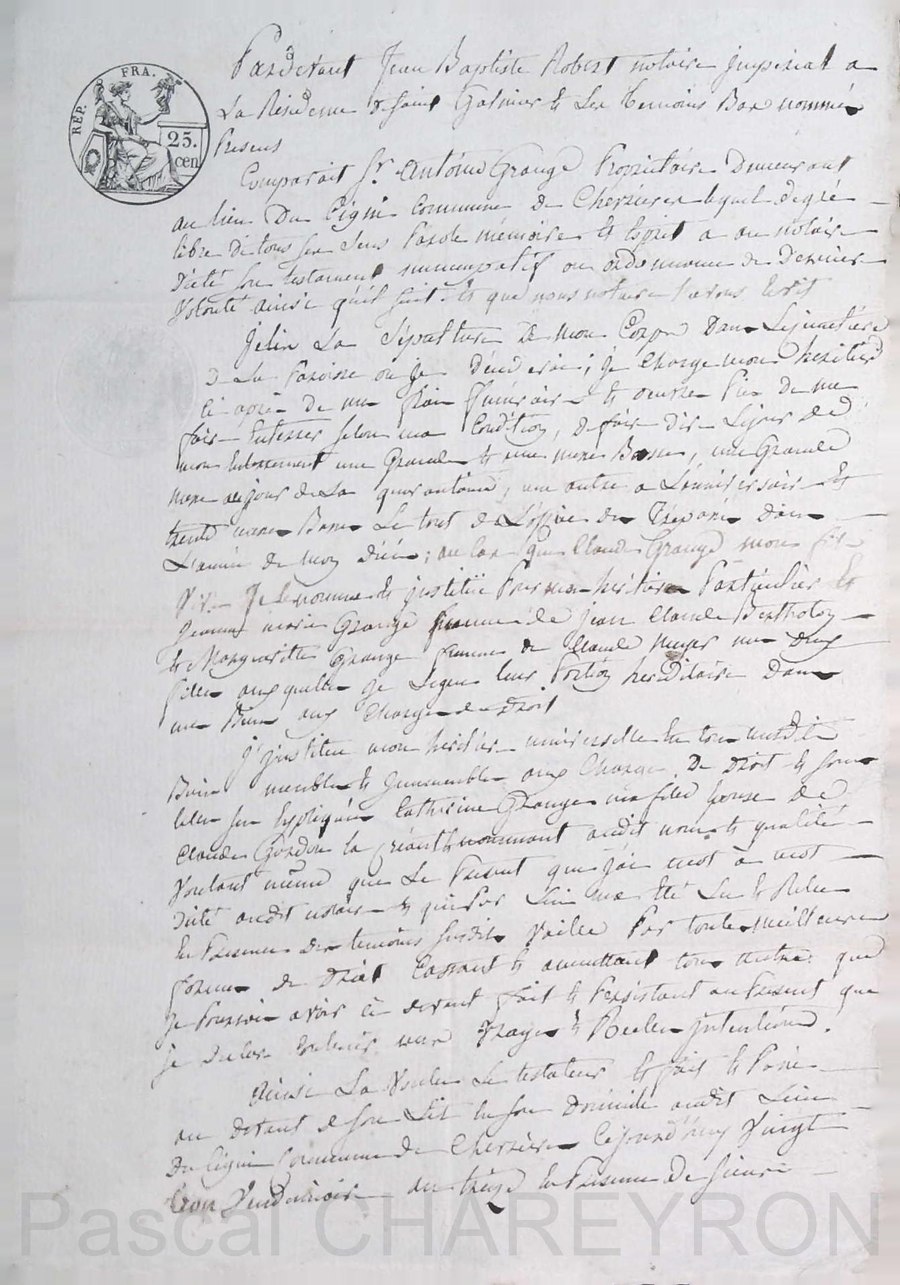 RÉP. FRA.
25.
cen
Pardevant Jean Baptiste Robert notaire jmperial a
La Residence de saint Galmier & Les temoins Bas nommés
Presens
Comparait Sr. Antoine Grange Proprietaire Demeurant
au lieu Du Cignie Commune de Cherrieres lequel de gré
libre de tous ses sens Parole mémoire & Esprit a au notaire
Dicté son testament nuncupatif ou ordonnance de Derniere
Volonté ainsi qu'il suit & que nous notaire l'avons Ecrit
J'elis La Sépulture De mon Corps Dans Le
De La Paroisse ou je Décederai; je Charge mon heritiere
Ci après de mes frais funéraires & oeuvres Pies de me
faire selon ma Condition, de faire dire Le jour de
mon Enterrement une Grande & une messe Basse, une Grande
messe au jour de La quarantaine, une autre a L'anniversaire &
trente messes Basses Le tout de L'office des Trépassés Dans
L'année de mon Décès; au Cas que Claude Grange mon fils
Vive Je le nomme & justitue Pour mon héritier Particulier &
Jeanne marie Grange femme de jean Claude Bertholon
& Marguerite Grange femme de Claude mes Deux
filles auxquelles je Legue leur Portion héréditaire Dans
mes Biens aux Charges de Droit
J'justitue mon heritiere universelle En tous mesdits
Biens meubles & jmmeubles aux Charges De Droit &
Expliquées Catherine Grange ma fille Epouse de
Claude la créant & nommant audit nom & qualité
Voulant même que Le Present que j'ai mot à mot
Dicté audit notaire & qui Par Lui m'a été Lu & Relu
En Presence Des temoins susdits Vaille Par toute meilleure
forme de Droit Cassant & annullant tous autres que
je Pourrois avoir ci devant fait & Persistant au Present que
je Declare Contenir mes Vrayes & Réelles jntentions.
Ainsi L'a Voulu Le testateur & fait & Passé
au Devant de son Lit En son Domicile audit Lieu
Du Cignie Commune de Cherrieres Cejourd'huy Vingt
Vendemiaire an treize En Presence De Sieurs
Pascal CHAREYRON